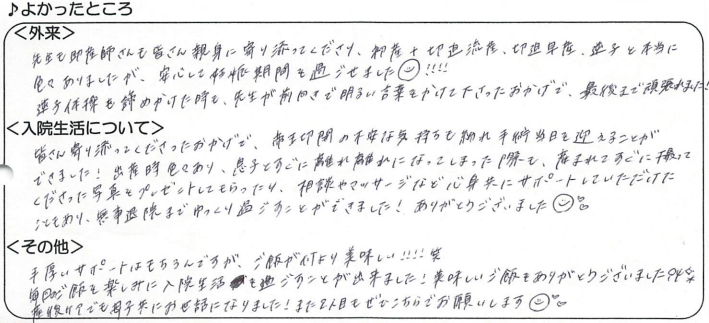 ♪よかったところ
<外来>
先生も助産師さんも皆さん親身に寄り添ってくださり、初産+切迫流産、切迫早産、逆子と本当に
色々ありましたが、安心して妊娠期間を過ごせました!!!!
逆子体操を諦めかけた時も、先生が前向きで明るい言葉をかけて下さったおかげで、最後まで頑張れました!
<入院生活について>
皆さん寄り添ってくださったおかげで、帝王切開の不安な気持ちも紛れ手術当日を迎えることが
できました!出産時色々あり、息子とすぐに離れ離れになってしまった際も、産まれてすぐに撮って
くださった写真をプレゼントしてもらったり、相談やマッサージなど心身共にサポートしていただけた
こともあり、無事退院までゆっくり過ごすことができました!ありがとうございました
<その他>
手厚いサポートはもちろんですが、ご飯が何より美味しい!!!!笑
毎回ご飯を楽しみに入院生活を過ごすことが出来ました!美味しいご飯もありがとうございました
産後ケアでも母子共にお世話になりました!また2人目もぜひこちらでお願いします